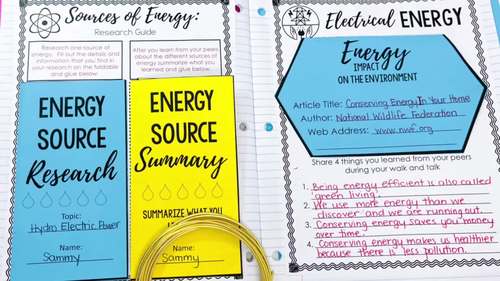 Sources of Energy:
Research Guide
Research one source of
energy. Fill out the details and
information that you find in
your research on the foldable
and glue below.
After you learn from your peers
about the different sources of
energy summarize what you
learned and glue below.
ENERGY
SOURCE
Research
Topic:
Hydro Electric Power
Name:
Sammy
ENERGY
SOURCE
Summary
SUMMARIZE WHAT YOU
Name:
Sammy
Electrical ENERGY
Energy
IMPACT
ON THE ENVIRONMENT
Article Title: Conserving Energy In Your Home
Author: National Wildlife Federation
Web Address: www.nwf.org
Share 4 things you learned from your peers
during your walk and talk
1. Being energy efficient is also called
"green living."
2. We use more energy than we
discover and we are running out.
3. Conserving energy saves you money
over time.
4. Conserving energy makes us healthier
because there is less pollution.